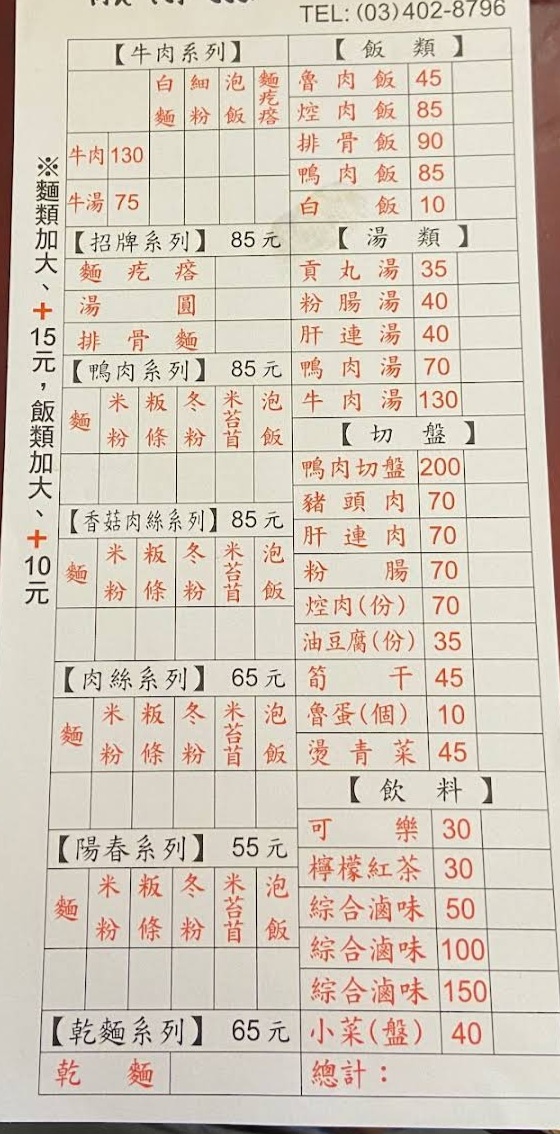 TEL: (03)402-8796
※麵類加大、+15元，飯類加大、+10元
【牛肉系列】
白麵 細粉 泡飯 麵疙瘩
牛肉 130
牛湯 75
【招牌系列】 85元
麵疙瘩
湯圓
排骨麵
【鴨肉系列】 85元
麵 米粉 粄條 冬粉 米苔苜 泡飯
【香菇肉絲系列】 85元
麵 米粉 粄條 冬粉 米苔苜 泡飯
【肉絲系列】 65元
麵 米粉 粄條 冬粉 米苔苜 泡飯
【陽春系列】 55元
麵 米粉 粄條 冬粉 米苔苜 泡飯
【乾麵系列】 65元
乾麵
【飯類】
魯肉飯 45
焢肉飯 85
排骨飯 90
鴨肉飯 85
白飯 10
【湯類】
貢丸湯 35
粉腸湯 40
肝連湯 40
鴨肉湯 70
牛肉湯 130
【切盤】
鴨肉切盤 200
豬頭肉 70
肝連肉 70
粉腸 70
焢肉(份) 70
油豆腐(份) 35
筍干 45
魯蛋(個) 10
燙青菜 45
【飲料】
可樂 30
檸檬紅茶 30
綜合滷味 50
綜合滷味 100
綜合滷味 150
小菜(盤) 40
總計：